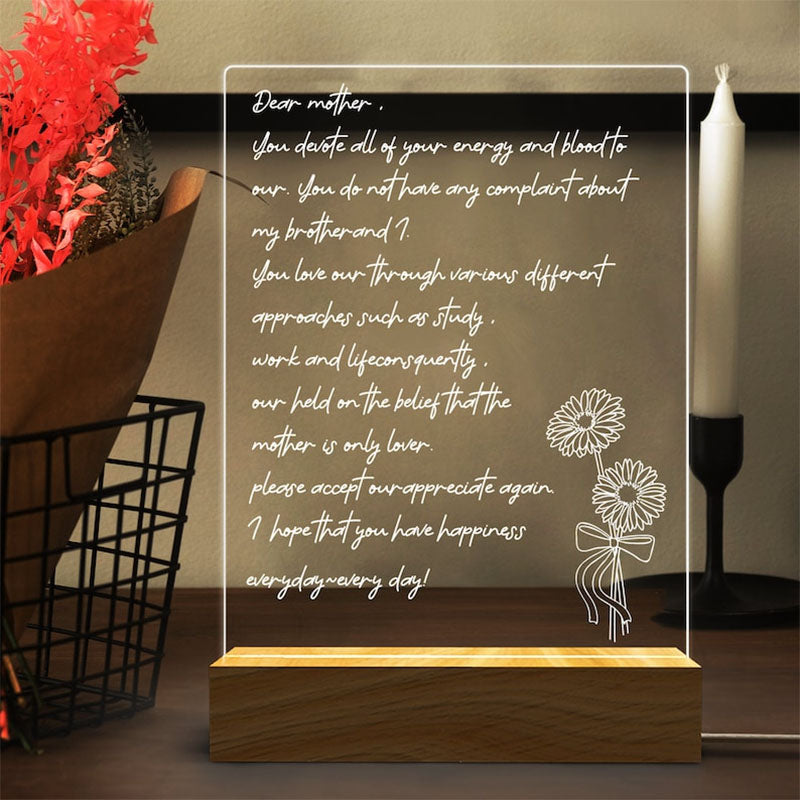 Dear mother ,
You devote all of your energy and blood to
our. You do not have any complaint about
my brother and I.
You love our through various different
approaches such as study ,
work and lifeconsquently ,
our held on the belief that the
mother is only lover.
please accept our appreciate again.
I hope that you have happiness
everyday~every day!